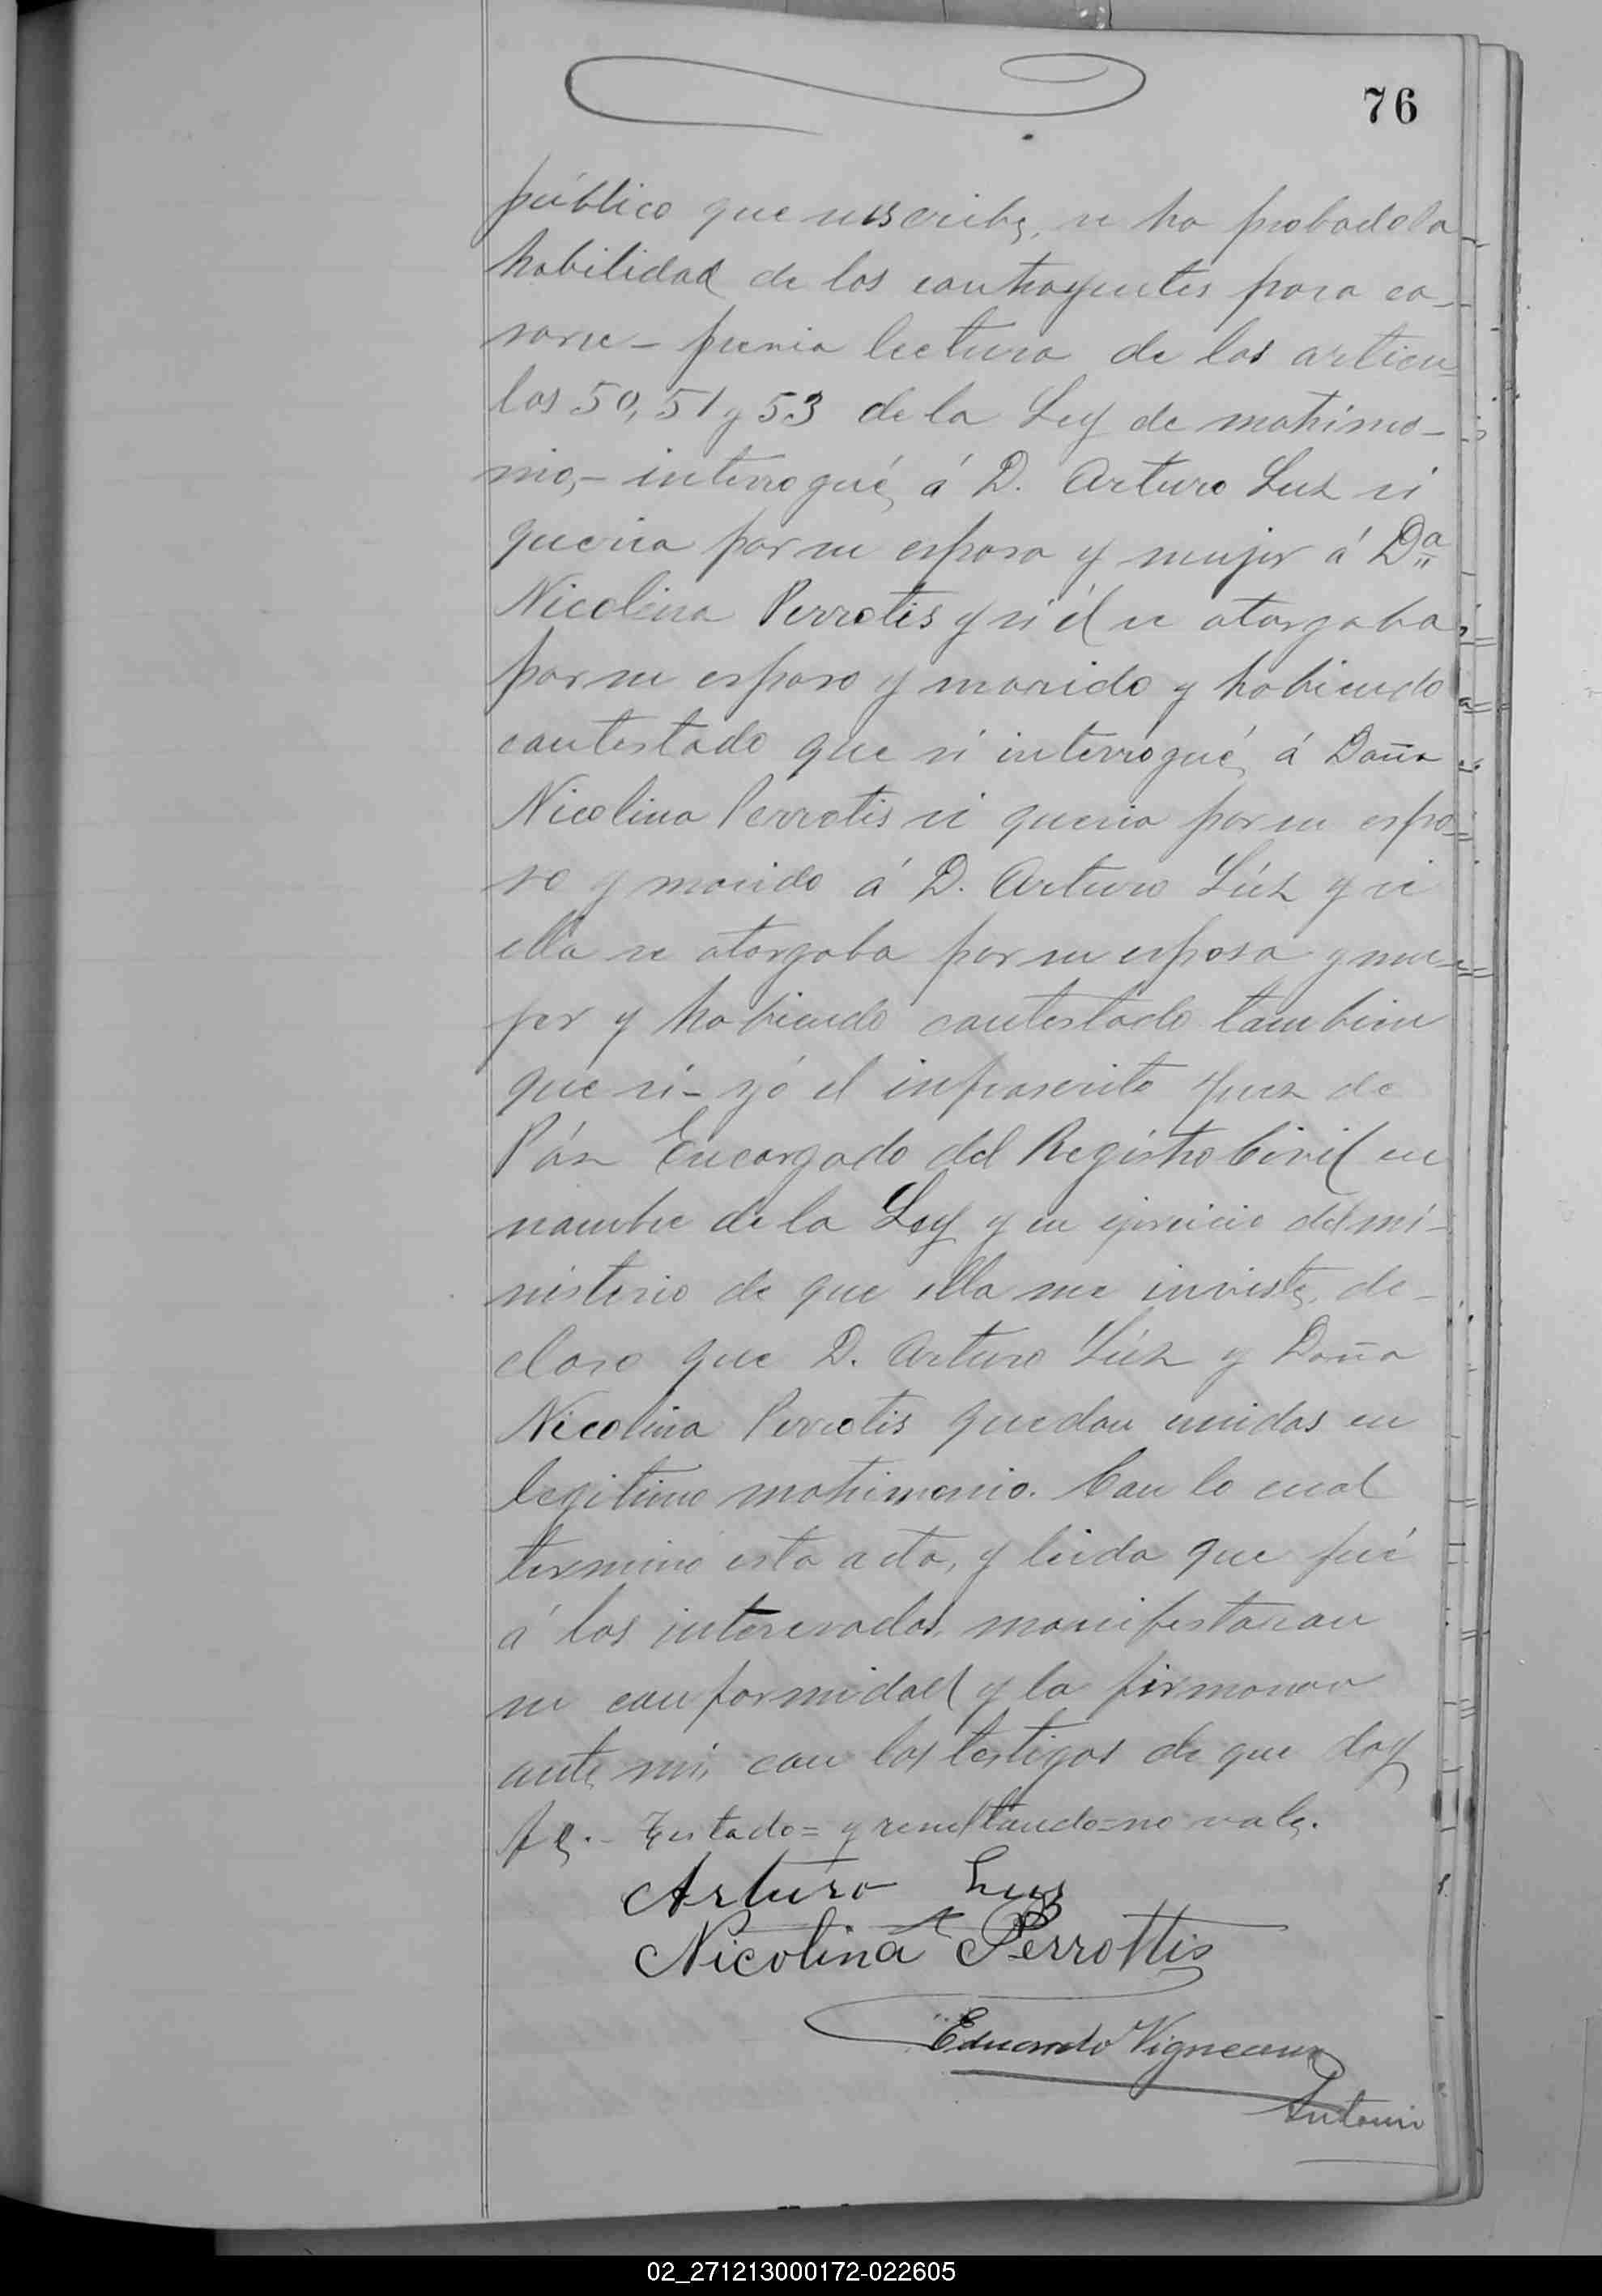 76
público que suscribe, se ha probado la
habilidad de los contrayentes para ca-
sarse - previa lectura de los articu-
los 50, 51 y 53 de la Ley de matrimo-
nio,- interrogué á D. Arturo Luz si
queria por su esposa y mujer á Dª
Nicolina Perrotis y si él se otorgaba
por su esposo y marido y habiendo
contestado que si interrogué á Doña
Nicolina Perrotis si queria por su espo-
so y marido á D. Arturo Lúz y si
ella se otorgaba por su esposa y mu-
jer y habiendo contestado tambien
que si - yó el infrascrito Juez de
Páz Encargado del Registro Civil en
nombre de la Ley y en ejercicio del mi-
nisterio de que ella me inviste, de-
claro que D. Arturo Lúz y Doña
Nicolina Perrotis quedan unidos en
legitimo matrimonio. Con lo cual
terminó esta acta, y leida que fué
á los interesados, manifestaron
su conformidad y la firmaron
ante mi, con los testigos de que doy
fe.- Testado= y resultando=no vale.
Arturo Luz
Nicolina Perrottis
Eduardo Vigneaux
Antonio
02_271213000172-022605